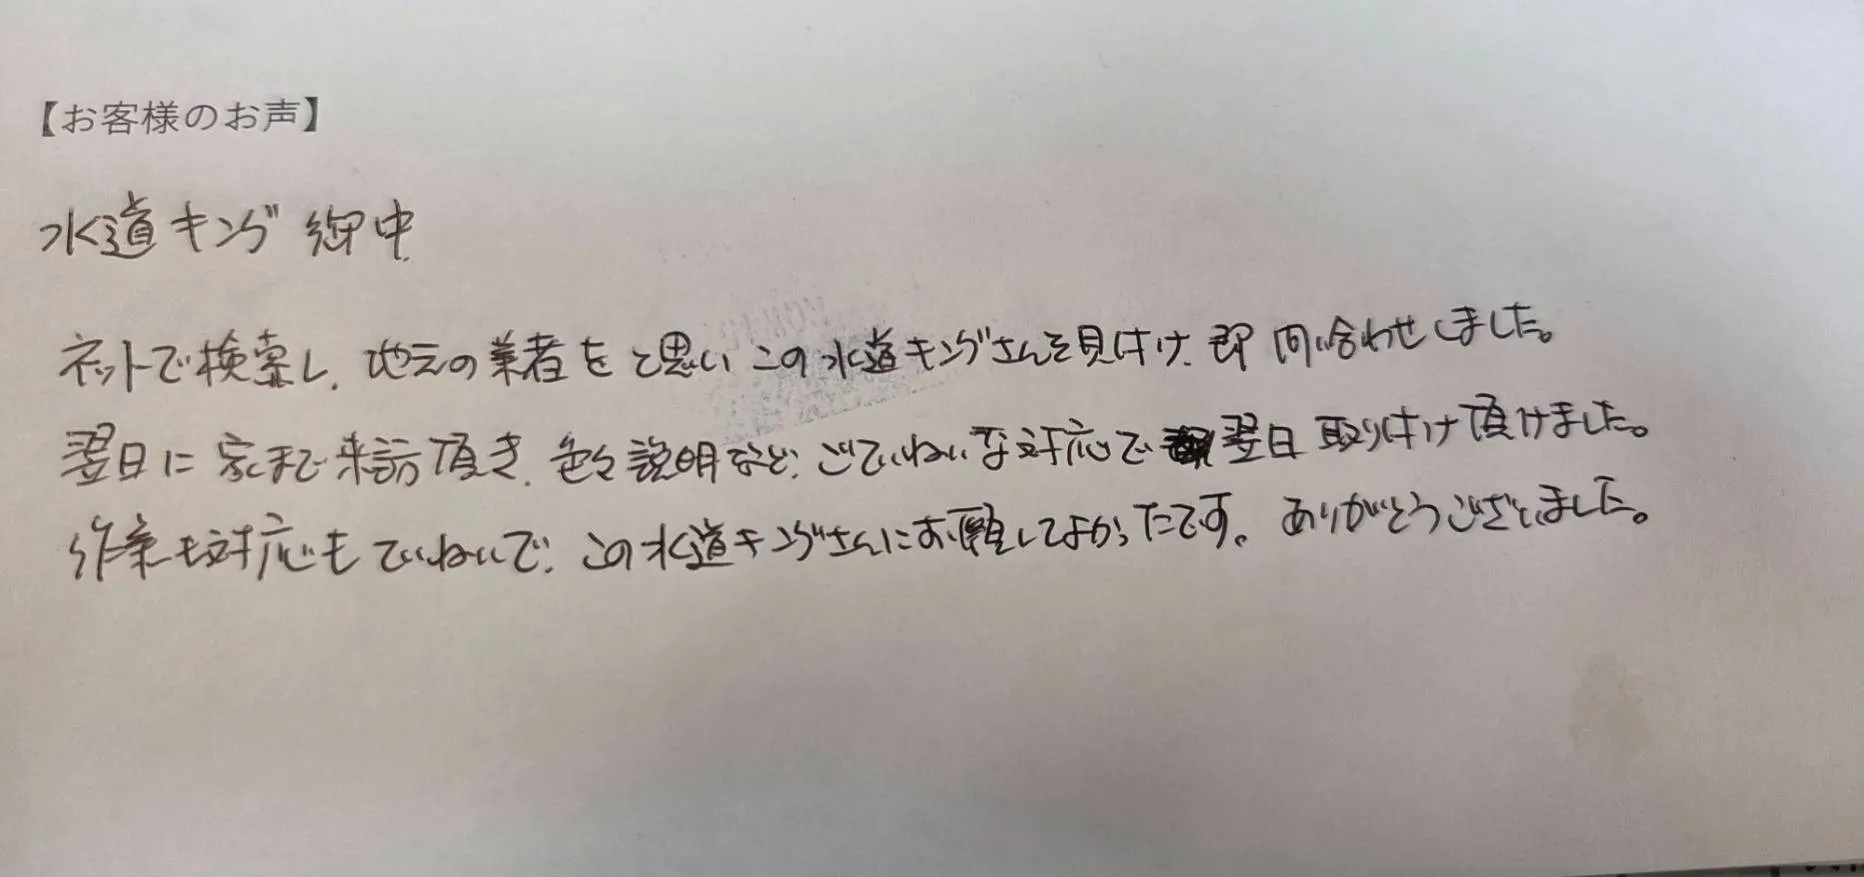 【お客様のお声】
水道キング御中
ネットで検索し、地元の業者をと思いこの水道キングさんを見付け、即問い合わせしました。
翌日に家まで来訪頂き、色々説明など、ごていねいな対応で翌日取り付け頂けました。
作業も対応もていねいで、この水道キングさんにお願してよかったです。ありがとうございました。